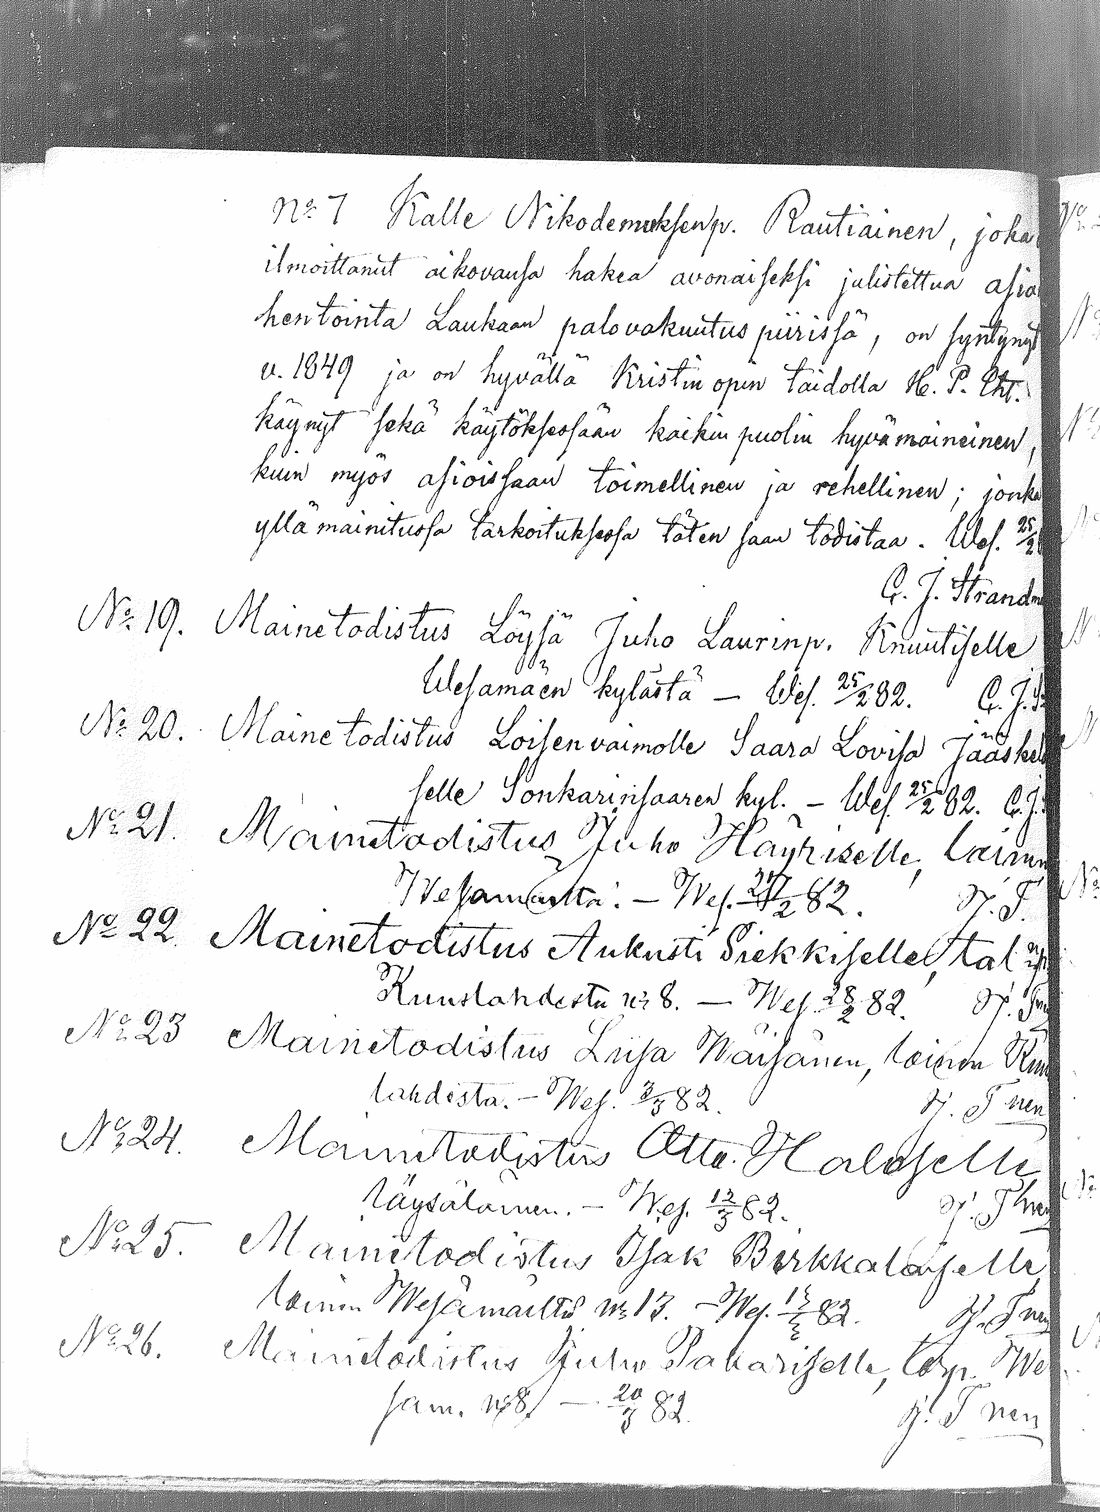 No 7 Kalle Nikodemuksenp. Rautiainen, joka
ilmoittanut aikovansa hakea avonaiseksi julistettua asia
hentointa Laukaan palovakuutus piirissä, on syntynyt
v. 1849 ja on hyvällä Kristin opin taidolla H. P. Eht.
käynyt sekä käytöksessään kaikin puolin hyvämaineinen,
kuin myös asioissaan toimellinen ja rehellinen; jonka
yllämainitussa tarkoituksessa täten saan todistaa. Wes. 25/2
C. J. Strandm
No 19. Mainetodistus Löysä Juho Laurinp. Knuutiselle
Wesamäen kylästä — Wes. 25/2 82. C. J. S
No 20. Maine todistus Loisen vaimolle Saara Lovisa Jääskel
selle Sonkarinsaaren kyl. — Wes. 25/2 82. C. J.
No 21. Mainetodistus Juho Häyriselle, loinen
Wesamäeltä. — Wes. 27/2 82. J. T.
No 22 Mainetodistus Aukusti Siekkiselle, tal
Kuuslahdesta No 8. — Wes. 28/2 82. J. Tnen
No 23 Mainetodistus Liisa Wäisänen, loinen Kuu
lahdesta. — Wes. 3/3 82. J. Tnen
No 24. Mainetodistus Otto Haloselle
läysäläinen. — Wes. 12/3 82. J. Tnen
No 25. Mainetodistus Isak Birkkalaiselle,
loinen Wesämäeltä No 13. — Wes. 82. J. Tnen
No 26. Mainetodistus Juho Pakariselle, torp. We
säm. No 8. — 20/3 82. J. Tnen